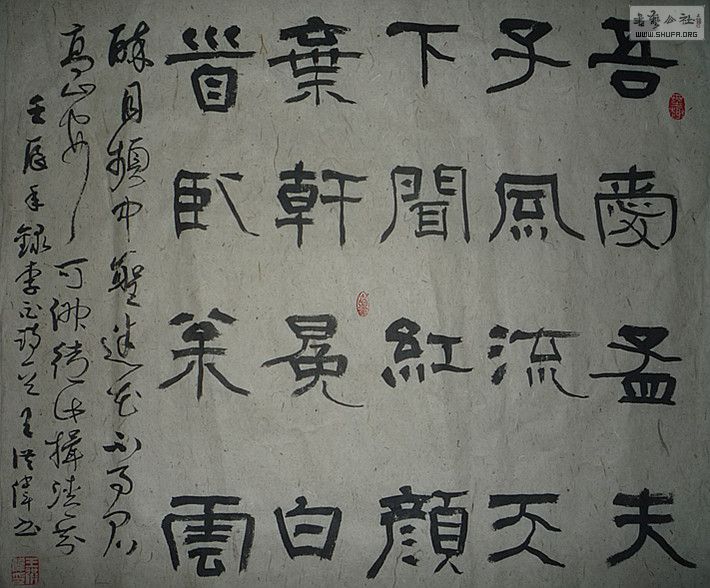 吾愛孟夫
子風流天
下聞紅顏
棄軒冕白
首臥松雲
醉月頻中聖迷花不事君
高山安可仰徒此揖清芬
壬辰年錄李白詩一首王洪偉书
書藝公社
WWW.SHUFA.ORG